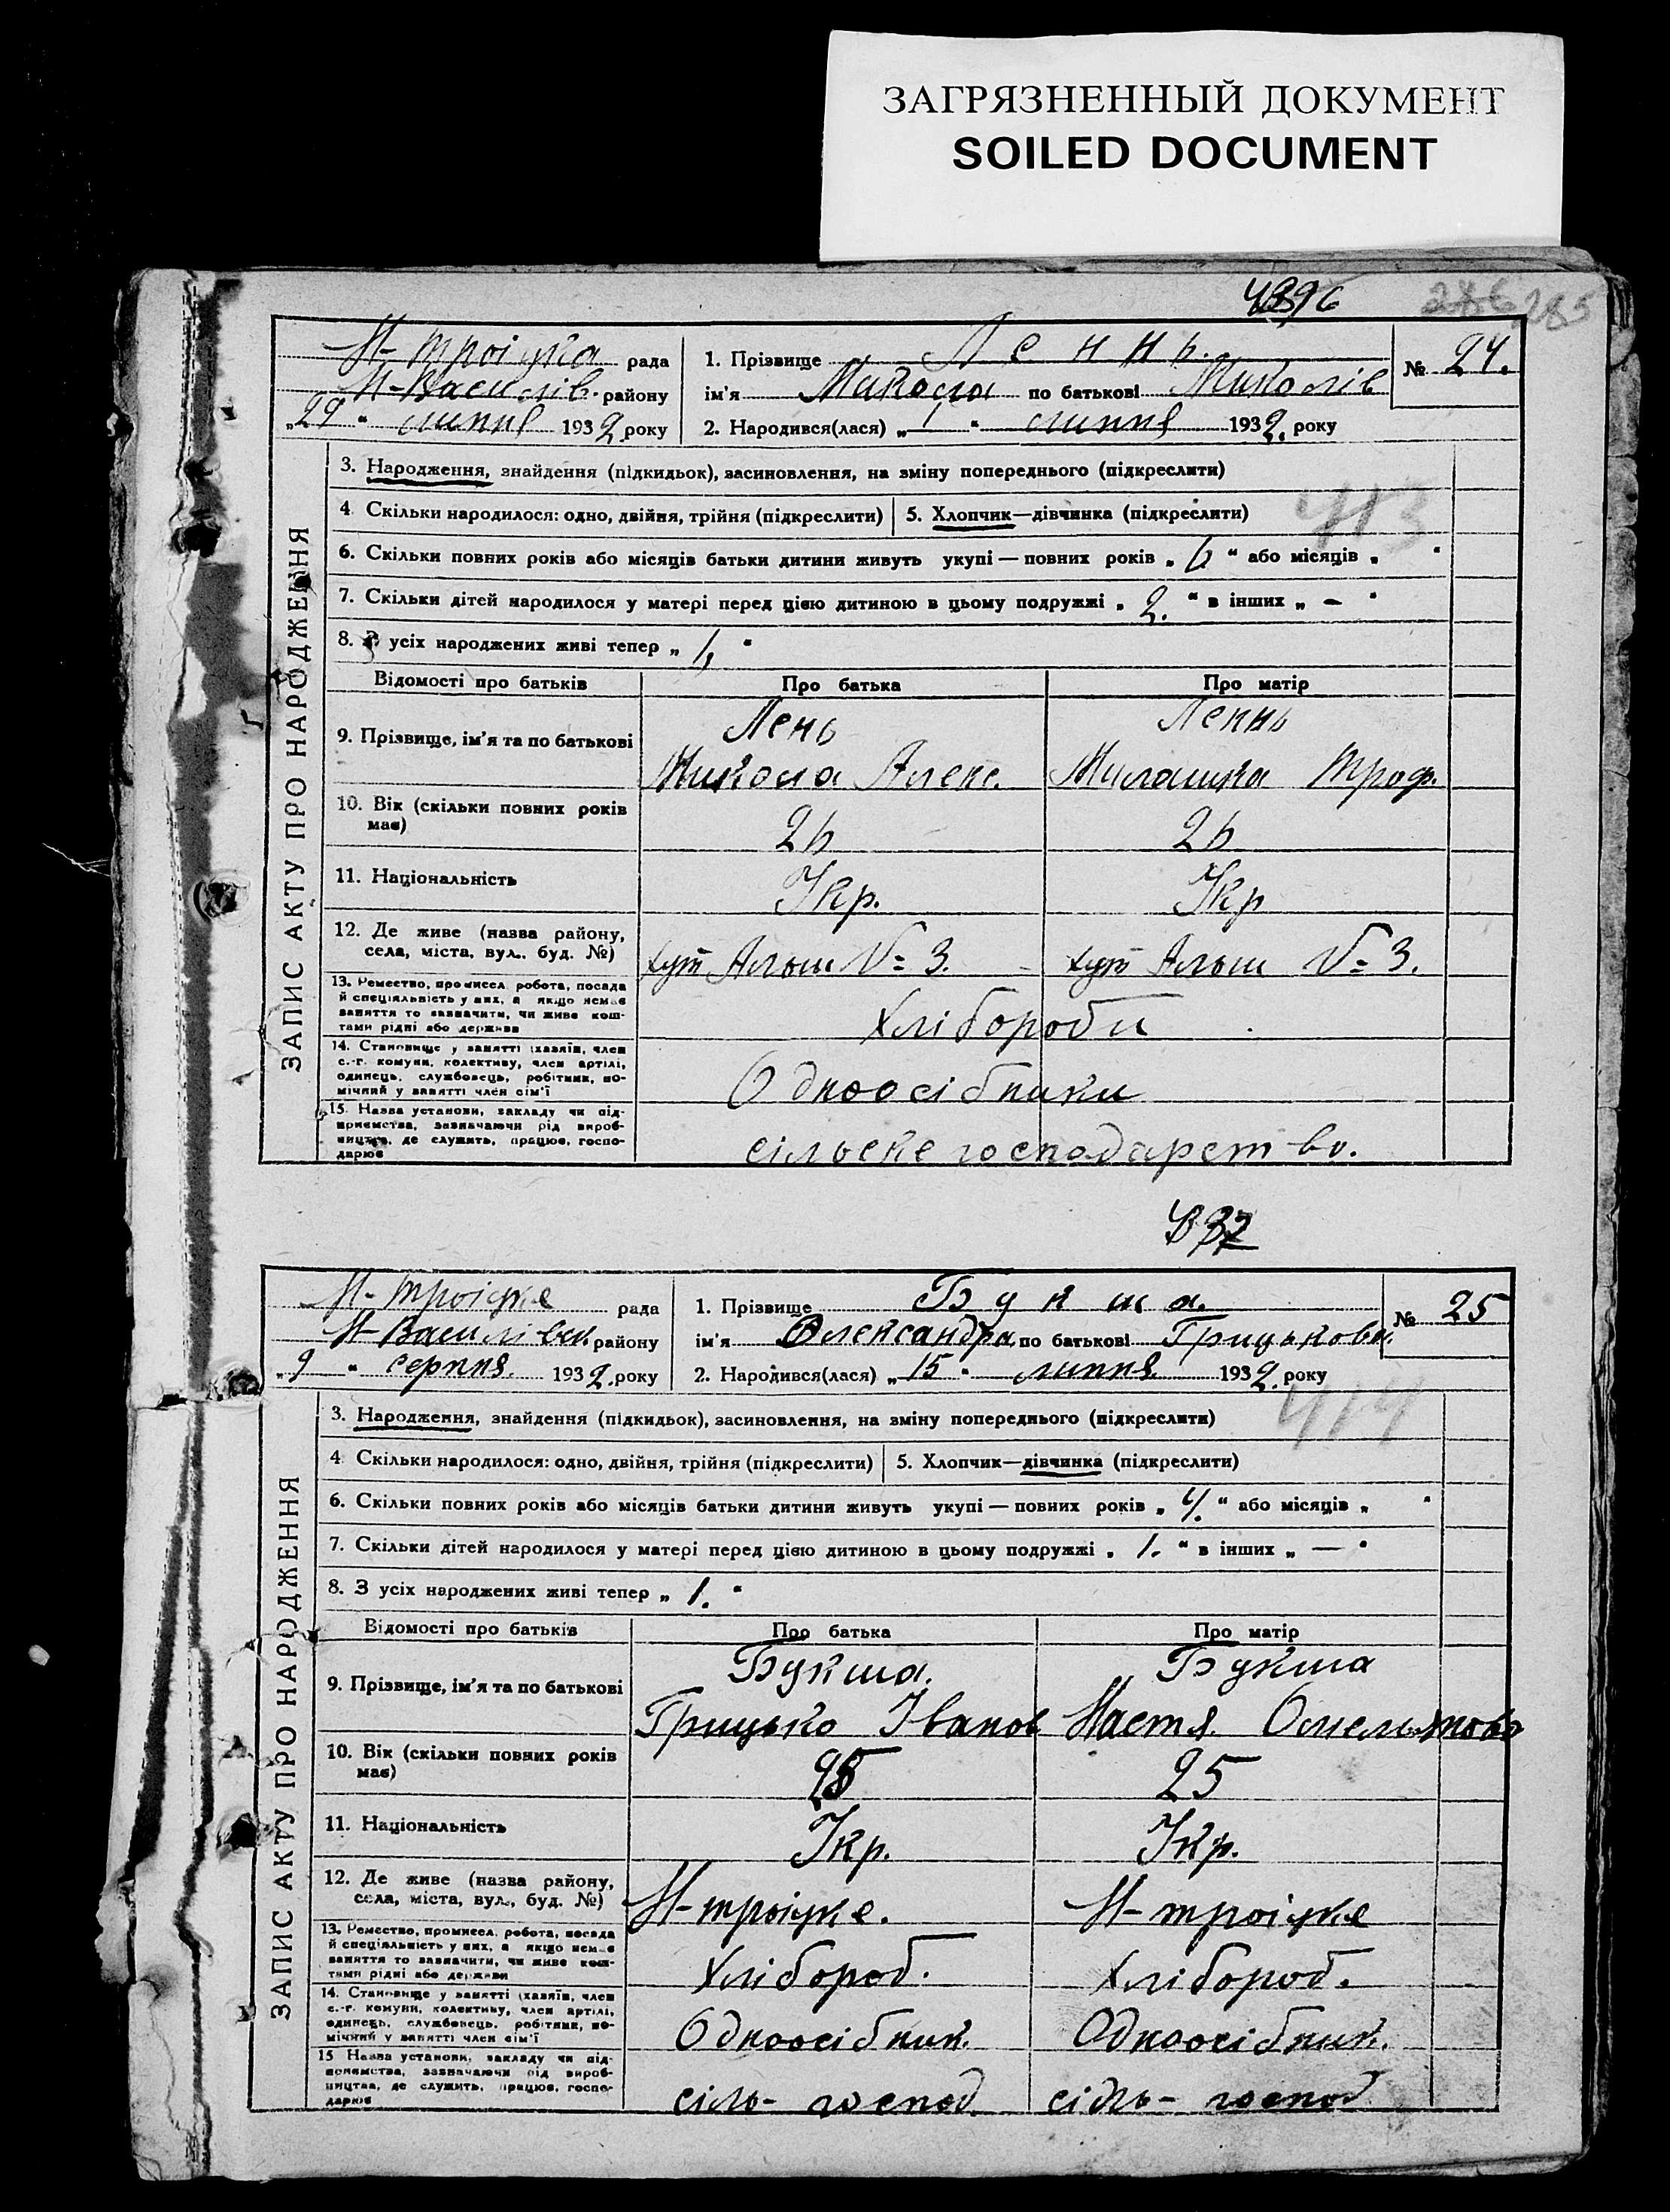 ЗАГРЯЗНЕННЫЙ ДОКУМЕНТ
SOILED DOCUMENT
285
ЗАПИС АКТУ ПРО НАРОДЖЕННЯ
Н-троіцка рада
Н-Василів. району
„29" липня 1932 року
1. Прізвище Леннь.
ім'я Микола по батькові Миколів
2. Народився(лася) „1" липня 1932. року
№ 24.
3. Народження, знайдення (підкидьок), засиновлення, на зміну попереднього (підкреслити)
413
4 Скільки народилося: одно, двійня, трійня (підкреслити) 5. Хлопчик—дівчинка (підкреслити)
6. Скільки повних років або місяців батьки дитини живуть укупі — повних років „6" або місяців „ "
7. Скільки дітей народилося у матері перед цією дитиною в цьому подружжі „2." в інших „-"
8. З усіх народжених живі тепер „1,"
Відомості про батьків Про батька Про матір
9. Прізвище, ім'я та по батькові
Лень Леннь
Микола Алекс. Милашка Троф.
10. Вік (скільки повних років має)
26 26
11. Національність Укр. Укр
12. Де живе (назва району,
села, міста, вул., буд. №)
хут Алыш №= 3. хут Алыш №= 3.
13. Ремество, промисел, робота, посада
й спеціяльність у них, а якщо немає
заняття то зазначити, чи живе кош-
тами рідні або держави
Хлібороби
14. Становище у занятті (хазяїн, член
с.-г. комуни, колективу, член артілі,
одинець, службовець, робітник, по-
мічний у занятті член сім'ї
Одноосібники
15. Назва установи, закладу чи під-
приємства, зазначаючи рід вироб-
ництва, де служить, працює, госпо-
дарює
сільське господарство.
ЗАПИС АКТУ ПРО НАРОДЖЕННЯ
Н-троіцке рада
Н-Василівск. району
„9" серпня. 1932. року
1. Прізвище Букша.
ім'я Олександра по батькові Грицькова.
2. Народився(лася) „15" липня. 1932. року
№ 25
3. Народження, знайдення (підкидьок), засиновлення, на зміну попереднього (підкреслити)
414
4 Скільки народилося: одно, двійня, трійня (підкреслити) 5. Хлопчик—дівчинка (підкреслити)
6. Скільки повних років або місяців батьки дитини живуть укупі — повних років „4." або місяців „ "
7. Скільки дітей народилося у матері перед цією дитиною в цьому подружжі „1." в інших „—"
8. З усіх народжених живі тепер „1."
Відомості про батьків Про батька Про матір
9. Прізвище, ім'я та по батькові
Букша. Букша
Грицько Іванов Настя.
10. Вік (скільки повних років має)
25
11. Національність Укр. Укр.
12. Де живе (назва району,
села, міста, вул., буд. №)
Н-троіцке. Н-троіцке
13. Ремество, промисел, робота, посада
й спеціяльність у них, а якщо немає
заняття то зазначити, чи живе кош-
тами рідні або держави
Хлібороб. Хлібороб.
14. Становище у занятті (хазяїн, член
с.-г. комуни, колективу, член артілі,
одинець, службовець, робітник, по-
мічний у занятті член сім'ї
Одноосібник. Одноосібник.
15 Назва установи, закладу чи під-
приємства, зазначаючи рід вироб-
ництва, де служить, працює, госпо-
дарює
сіль- господ. сіль- господ